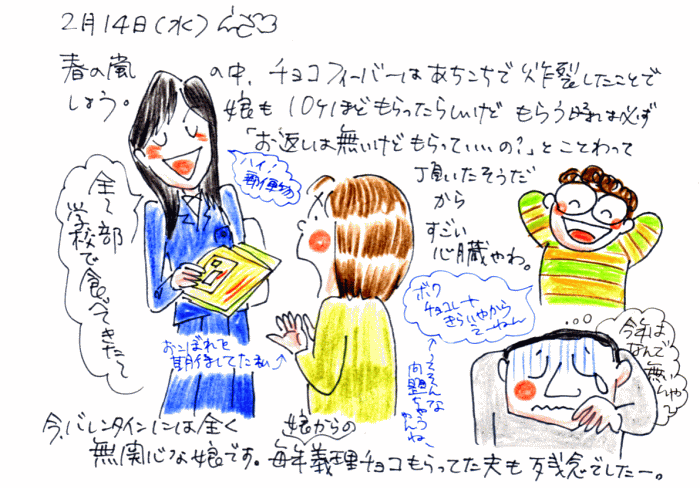 2月14日(水)
春の嵐の中、チョコフィーバーはあちこちで炸裂したことで
しょう。娘も10ケほどもらったらしいけどもらう時は必ず
「お返しは無いけどもらっていいの?」とことわって
頂いたそうだ
から
すごい
心臓やわ。
全部
学校で食べてきたで
ハイ!
郵便物
おこぼれを
期待してた私
ボク
チョコレート
きらいやから
えーねん
そんな
問題ちゃう
ねん
今年は
なんで
無いんや〜
今、バレンタインには全く
無関心な娘です。毎年娘からの義理チョコもらってた夫も残念でしたー。